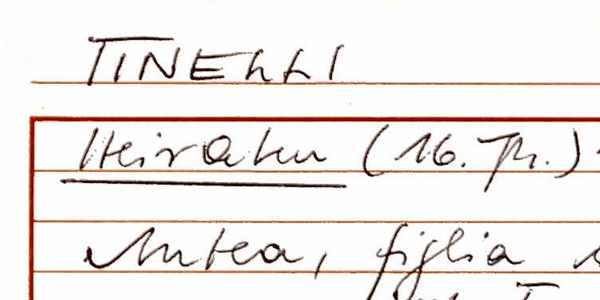 TINELLI
Heiraten (16. Jh.)
Antea, figlia